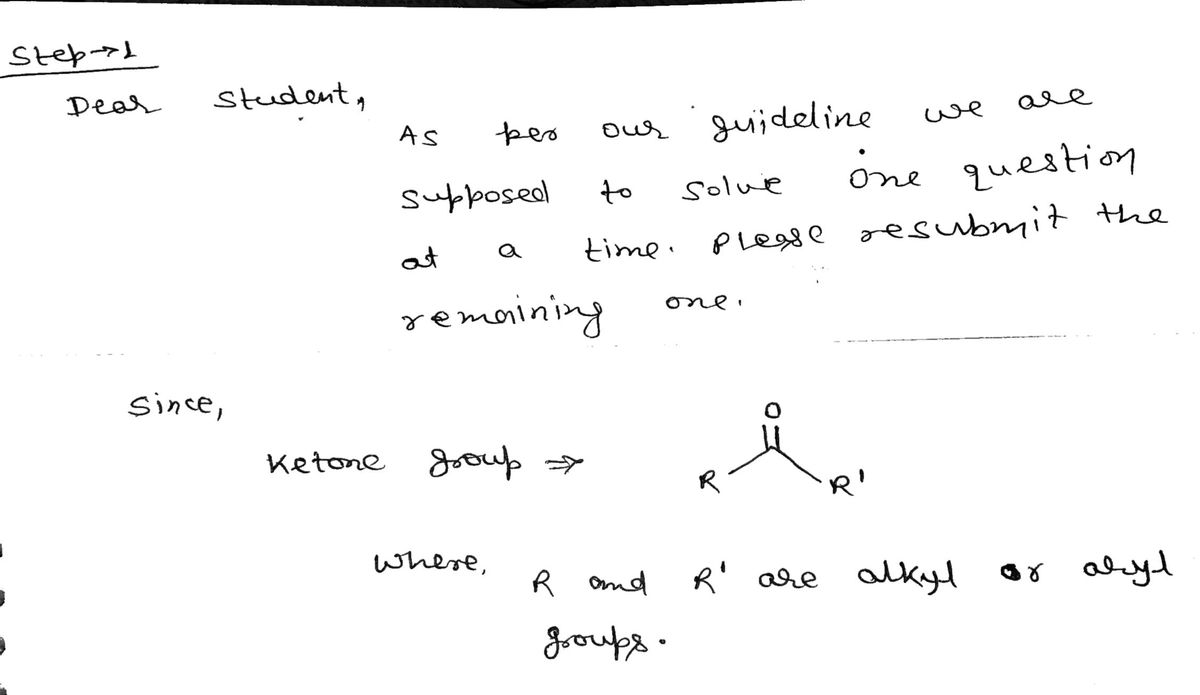 Step→1
Dear Student,
As per our guideline we are
supposed to solve one question
at a time. Please resubmit the
remaining one.
Since,
Ketone group ⇒
O
R R'
where,
R and R' are alkyl or aryl
groups.